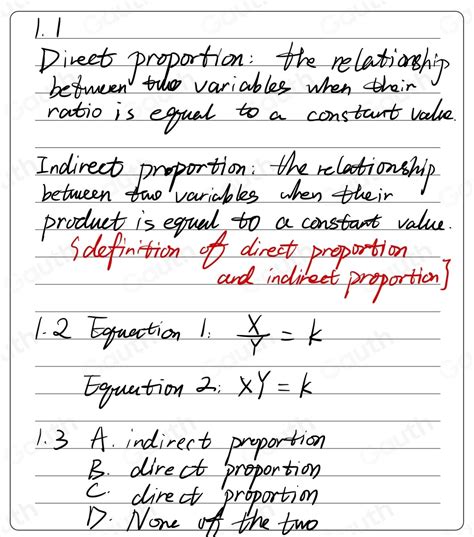 1.1
Direct proportion: the relationship
between two variables when their
ratio is equal to a constant value.
Indirect proportion: the relationship
between two variables when their
product is equal to a constant value.
{definition of direct proportion
and indirect proportion}
1.2 Equation 1: X/Y = k
Equation 2: XY = k
1.3 A. indirect proportion
B. direct proportion
C. direct proportion
D. None of the two